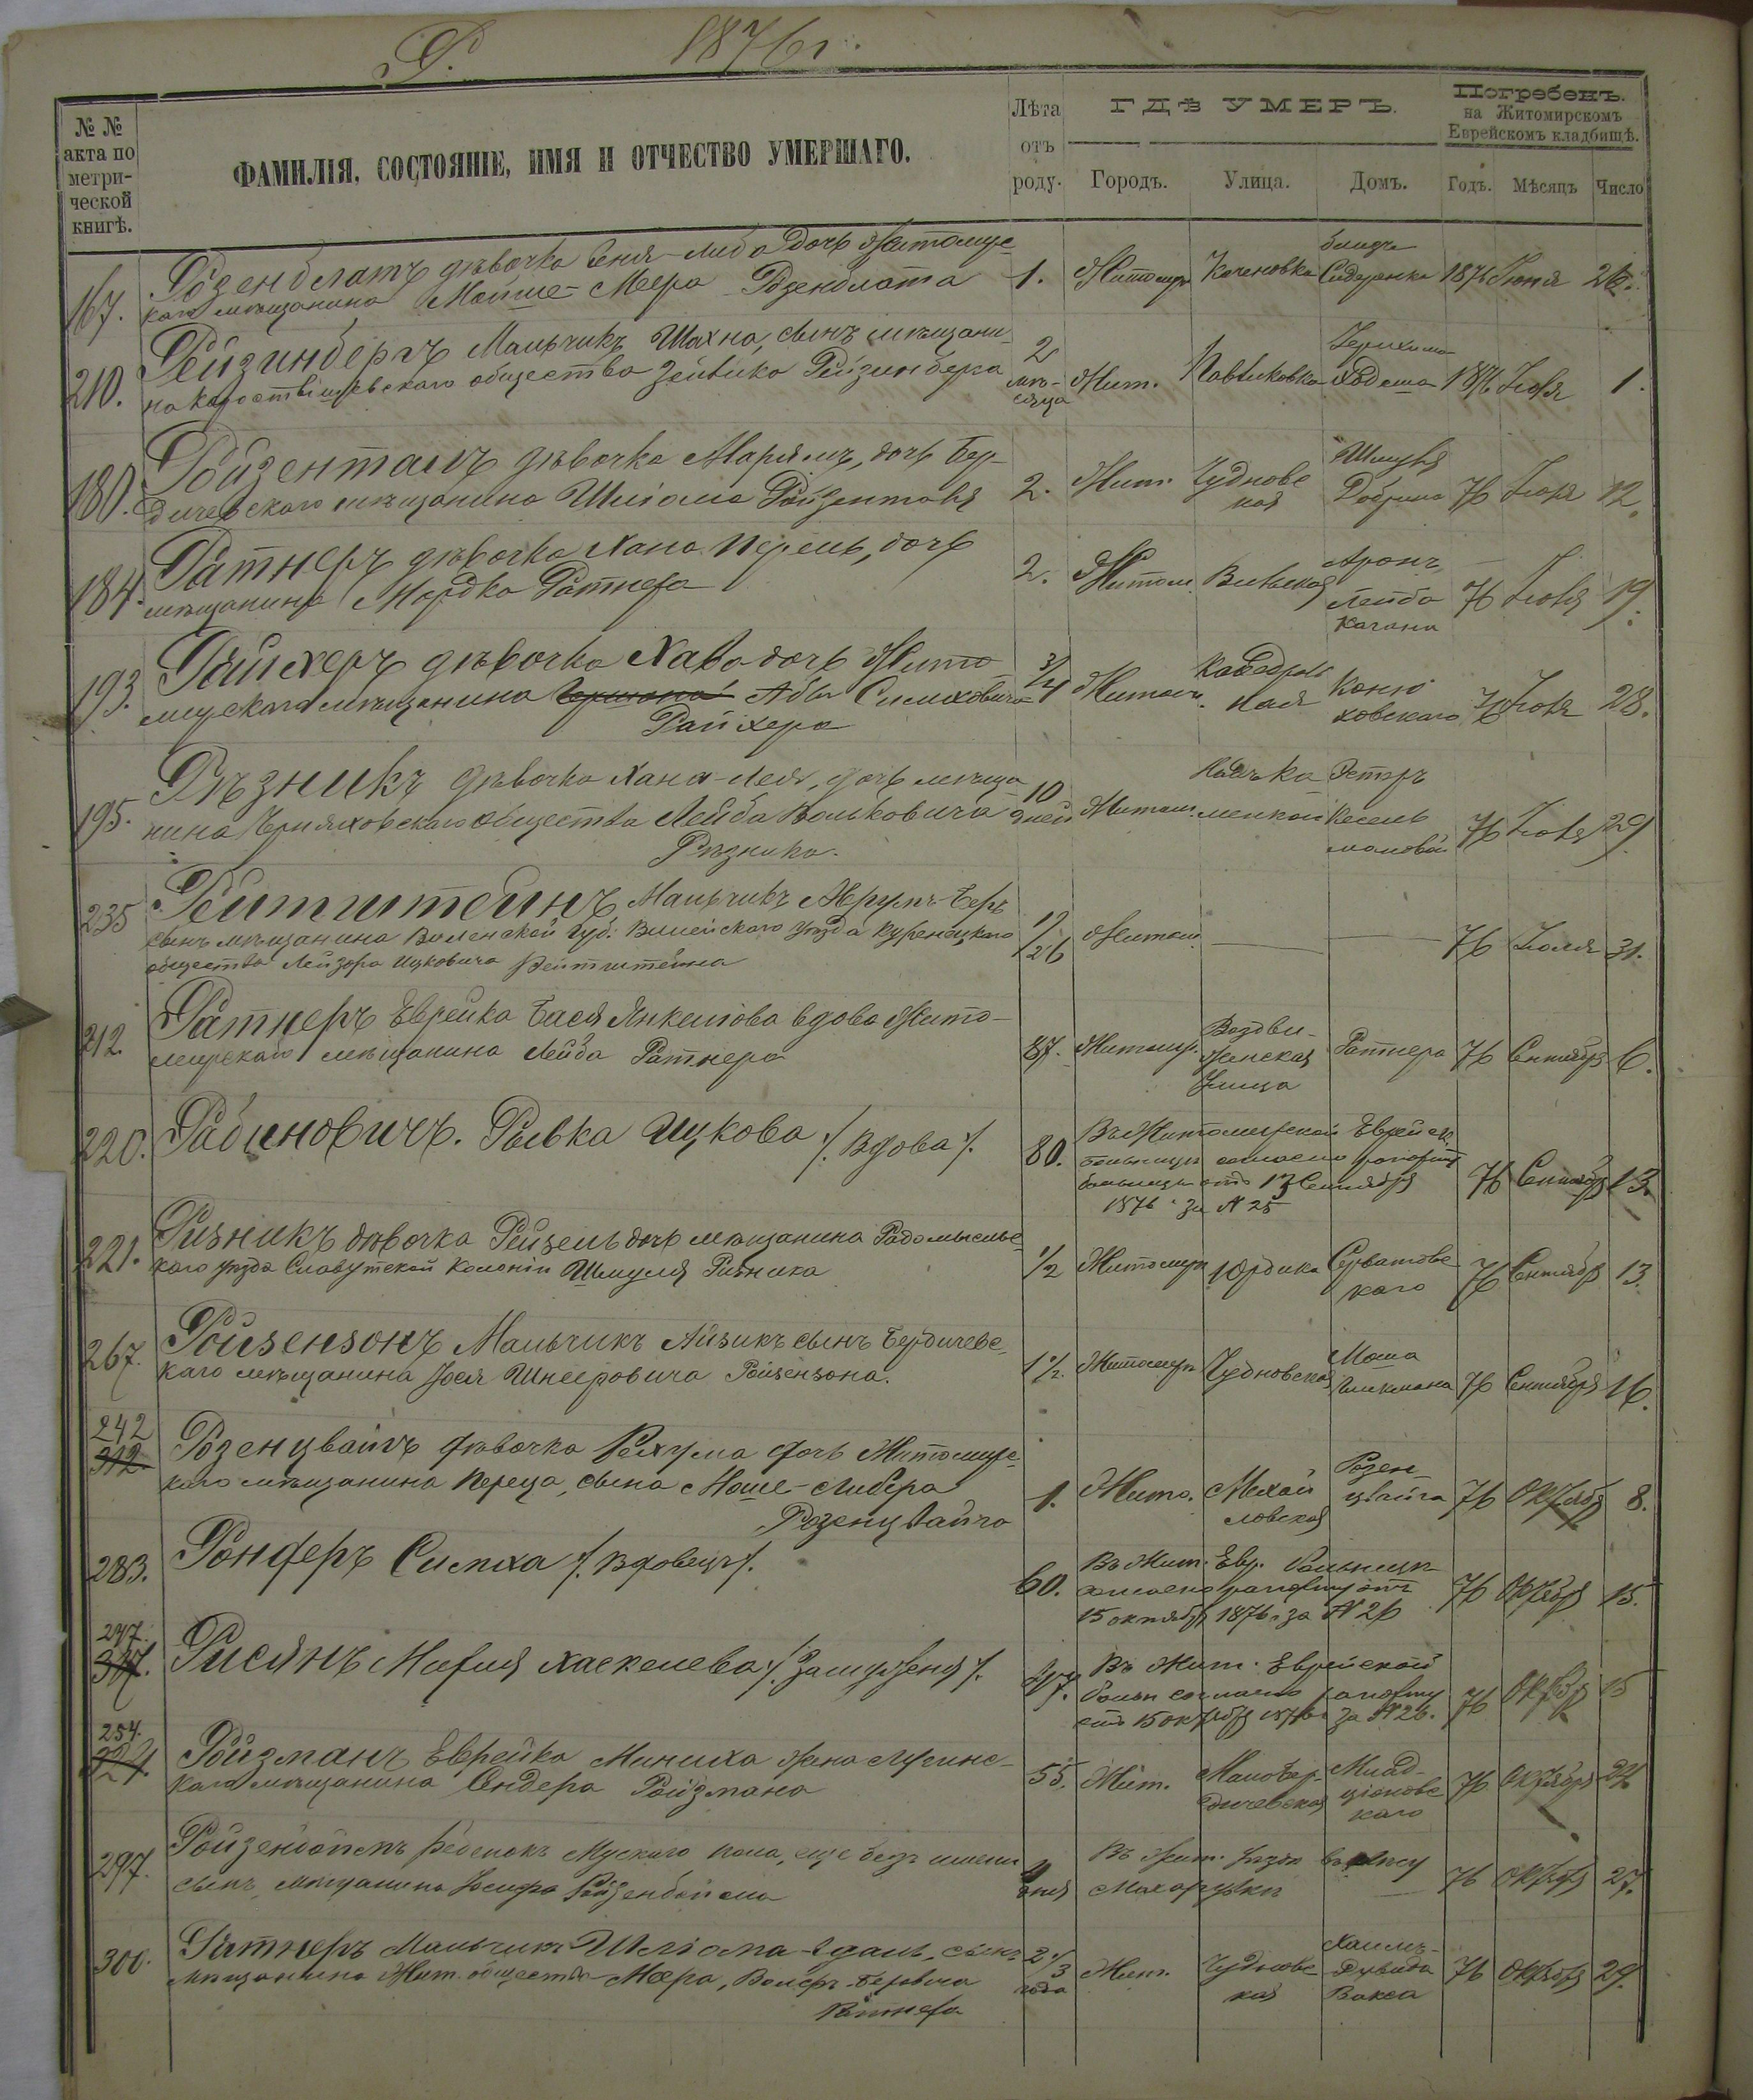 Р. 1876 г.
№ № акта по метри-ческой книгѣ.
ФАМИЛІЯ, СОСТОЯНІЕ, ИМЯ И ОТЧЕСТВО УМЕРШАГО.
Лѣта отъ роду.
ГДѢ УМЕРЪ.
Городъ. Улица. Домъ.
Погребенъ.
на Житомирскомъ
Еврейскомъ кладбищѣ.
Годъ. Мѣсяцъ Число
167. Розенблатъ дѣвочка Сеня-Либа дочь Житомирс-
каго мѣщанина Мойше-Меера Розенблата 1. Житомир Каченовка 1876 Іюня 26.
210. Рейзинбергъ Мальчикъ Шахна, сынъ мѣщани-
на Коростышевскаго общества Зейвика Рейзинберга 2 мѣ-сяца Жит. Павликовка 1876 Іюля 1.
180. Ройзенталъ дѣвочка Марьямъ, дочь Бер-
дичевскаго мѣщанина Шліома Ройзенталя 2. Жит. Чудновс кая Шмуля 76 Іюля 12.
184. Ратнеръ дѣвочка Хана Перель, дочь
мѣщанина Мордка Ратнера 2. Житом. Вильская Аронъ Лейба Кагана 76 Іюля 19.
193. Райхеръ дѣвочка Хава дочь Жито
мирскаго мѣщанина Абы Симховича
Райхера 3/4 Житом. Кафедраль ная 76 Іюля 28.
195. Рѣзникъ дѣвочка Хана-Лея, дочь мѣща
нина Черняховскаго общества Лейба Вольковича
Рѣзника. 10 дней Житом. Эстеръ Кесель мановой 76 Іюля 29.
235 Рейтштейнъ Мальчикъ Аврумъ-Беръ
сынъ мѣщанина Виленской губ. Вилейскаго уѣзда Куренецкаго
общества Лейзора Ицковича Рейтштейна 1/26 Житом. 76 Іюля 31.
212. Ратнеръ Еврейка Бася Янкелова вдова Жито-
мирскаго мѣщанина Лейба Ратнера 87. Житомир. Воздви-женская улица Ратнера 76 Сентября 6.
220. Рабиновичъ. Рывка Ицкова /. Вдова /. 80. Въ Житомирской Еврейск.
больницѣ согласно рапорту
больницы отъ 13 Сентября
1876 г за № 25 76 Сентября 13.
221. Ризникъ дѣвочка Рейзель дочь мѣщанина Радомысльс-
каго уѣзда Славутской Колоніи Шмуля Ризника 1/2 Житомир Юрдика Серватовс каго 76 Сентября 13.
267. Ройзензонъ Мальчикъ Айзикъ сынъ Бердичевс-
каго мѣщанина Іося Шнееровича Ройзензона. 1 1/2. Житомир Чудновская Моша Гликмана 76 Сентября 16.
242
312
Розенцвайгъ дѣвочка Рехума дочь Житомирс-
каго мѣщанина Переца, сына Моше-Либера
Розенцвайга 1. Жито. Михай ловская Розен цвайга 76 Октября 8.
283. Ронферъ Симха /. вдовецъ /. 60. Въ Жит. Евр. больницѣ
согласно рапорту отъ
15 октября 1876 г за № 26 76 Октября 15.
247.
317.
Рисянъ Мирля Хаскелева /. замужняя /. 47. Въ Жит. Еврейской
больн согласно рапорту
отъ 15 октября 1876 г за № 26. 76 Октября 15
254.
324.
Ройзманъ Еврейка Миниха жена Лугинс-
каго мѣщанина Сендера Ройзмана 55. Жит. Малобер-дичевская Миод-ціоновс каго 76 Октября 22
297. Ройзенбоймъ ребенокъ Мужскаго пола, еще безъ имени
сынъ мѣщанина Іосифа Ройзенбойма дня Въ Жит. уѣздѣ въ лѣсу 76 Октября 27.
300. Ратнеръ Мальчикъ Шліома-Идаль, сынъ
мѣщанина Жит. общества Меера, Вольфъ-Беровича
Ратнера 2 1/3 года Жит. Чудновс кая Хаимъ-Дувида Вакса 76 Октября 29.